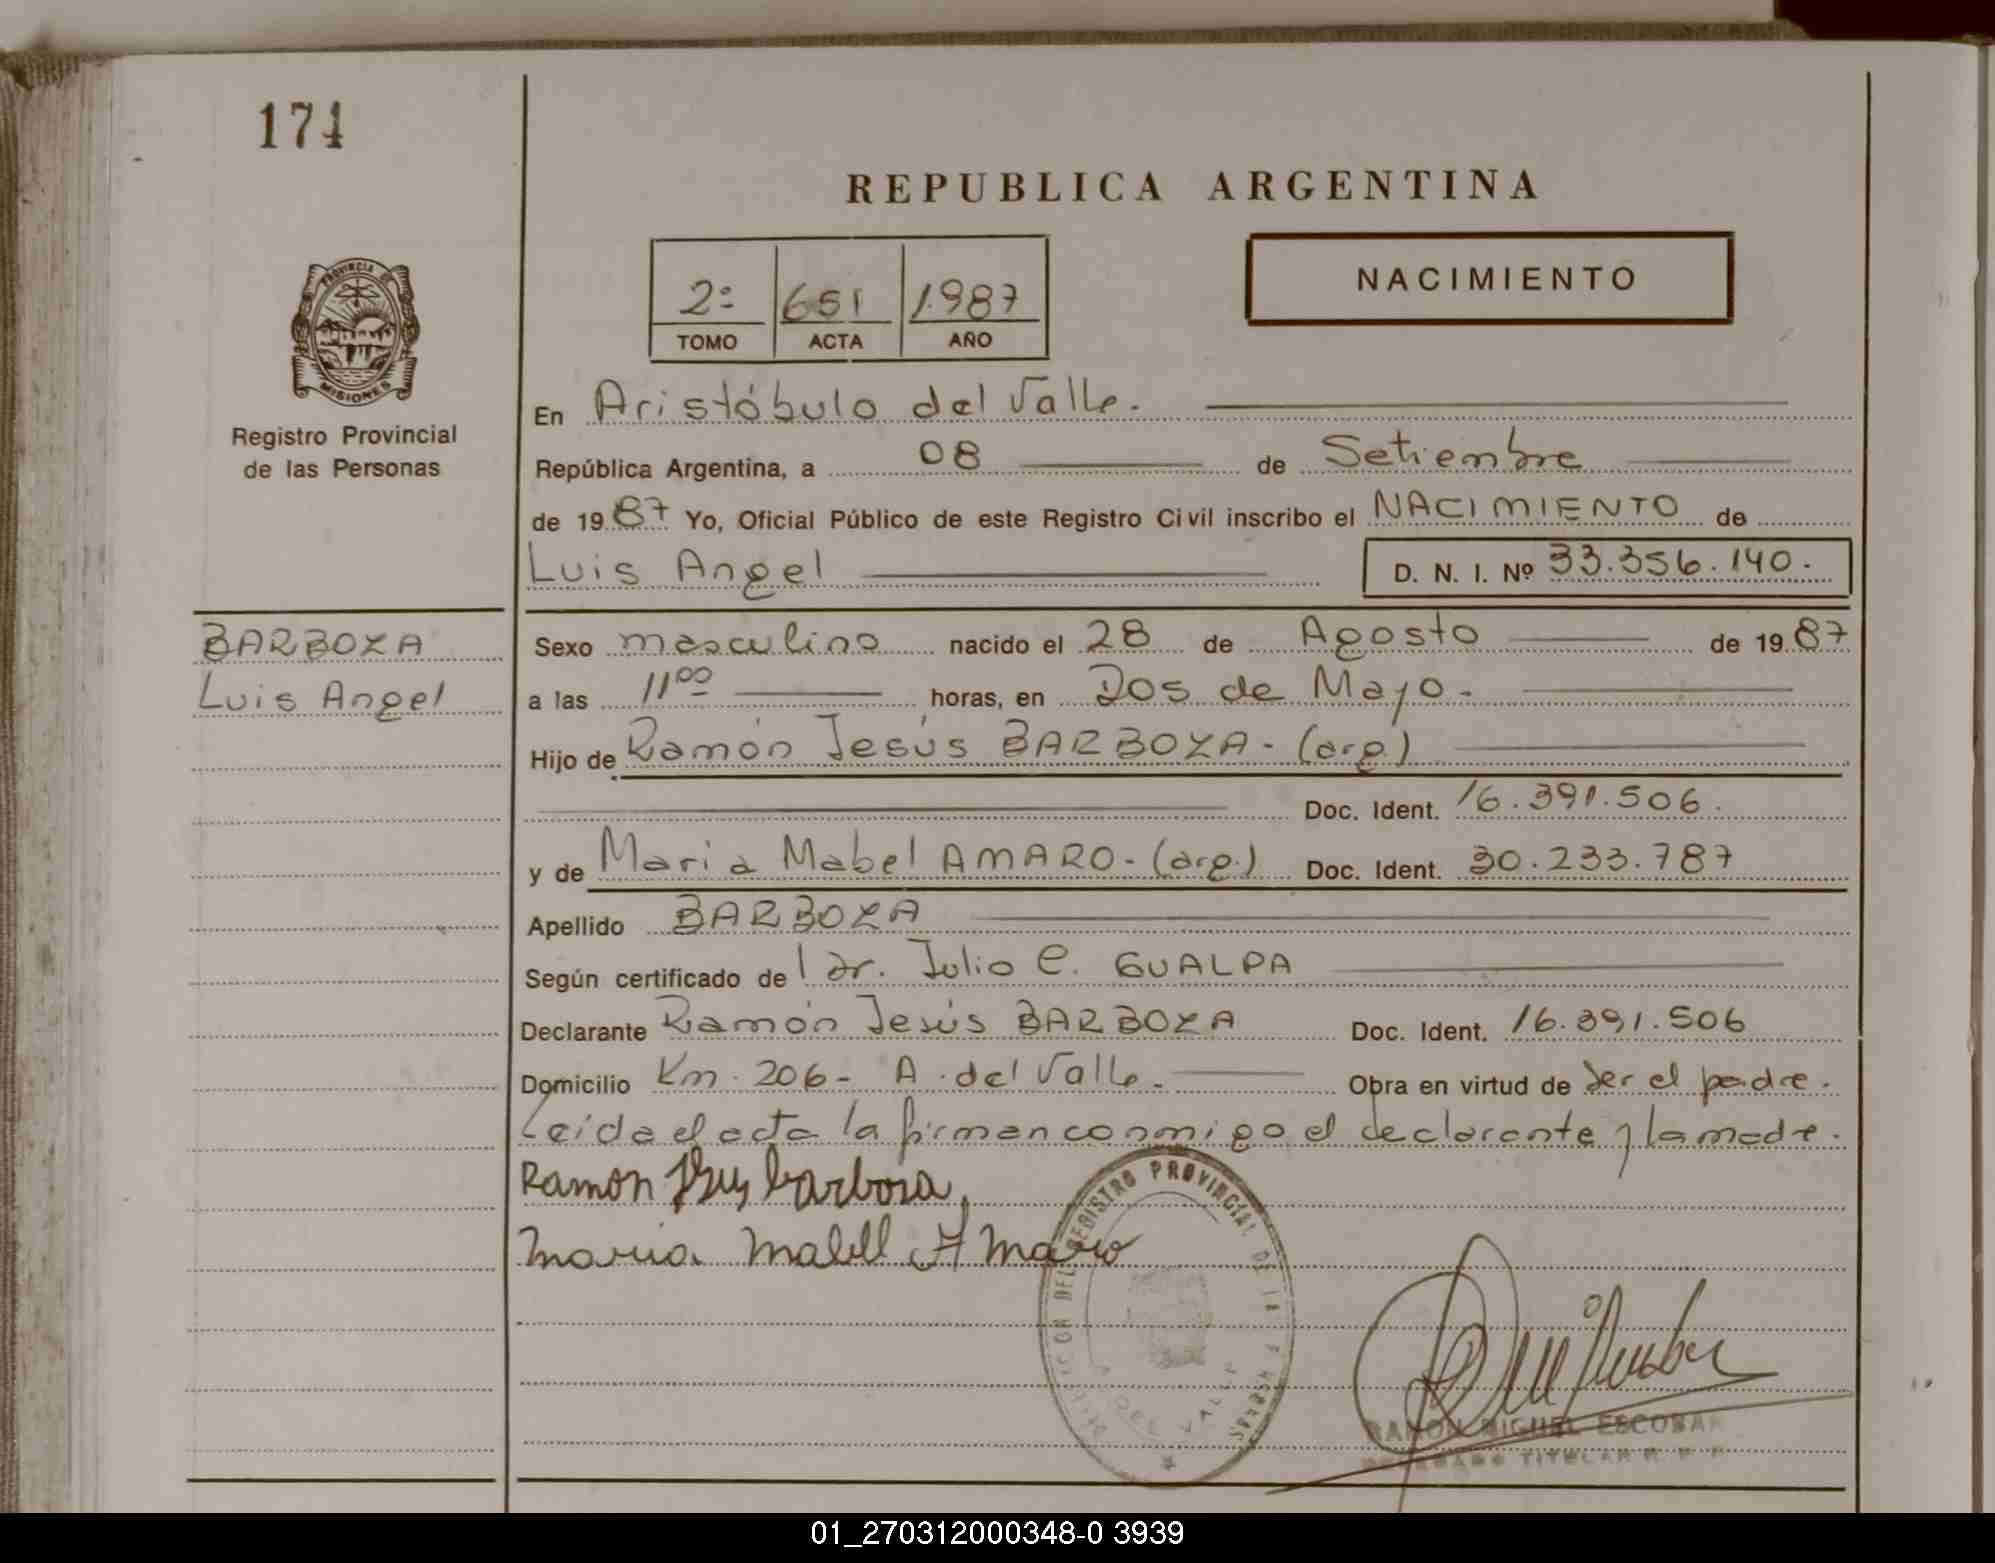 174
REPUBLICA ARGENTINA
NACIMIENTO
2º 651 1.987
TOMO ACTA AÑO
PROVINCIA DE
MISIONES
Registro Provincial
de las Personas
En Aristóbulo del Valle.
República Argentina, a 08 de Setiembre
de 1987 Yo, Oficial Público de este Registro Civil inscribo el NACIMIENTO de
Luis Angel D. N. I. Nº 33.356.140.
BARBOZA
Luis Angel
Sexo masculino nacido el 28 de Agosto de 1987
a las 11⁰⁰ horas, en Dos de Mayo.
Hijo de Ramón Jesús BARBOZA - (arg)
Doc. Ident. 16.391.506.
y de Maria Mabel AMARO - (arg.) Doc. Ident. 30.233.787
Apellido BARBOZA
Según certificado de l dr. Julio C. GUALPA
Declarante Ramón Jesús BARBOZA Doc. Ident. 16.391.506
Domicilio Km. 206- A. del Valle. Obra en virtud de ser el padre.
Leida el acta la firman conmigo el declarante y la madre.
Ramon Jesus barboza
Maria Mabell Amaro
REGISTRO PROVINCIAL DE LAS PERSONAS
DEL VALLE
RAMON MIGUEL ESCOBAR
DELEGADO TITULAR R. P. P.
01_270312000348-0 3939